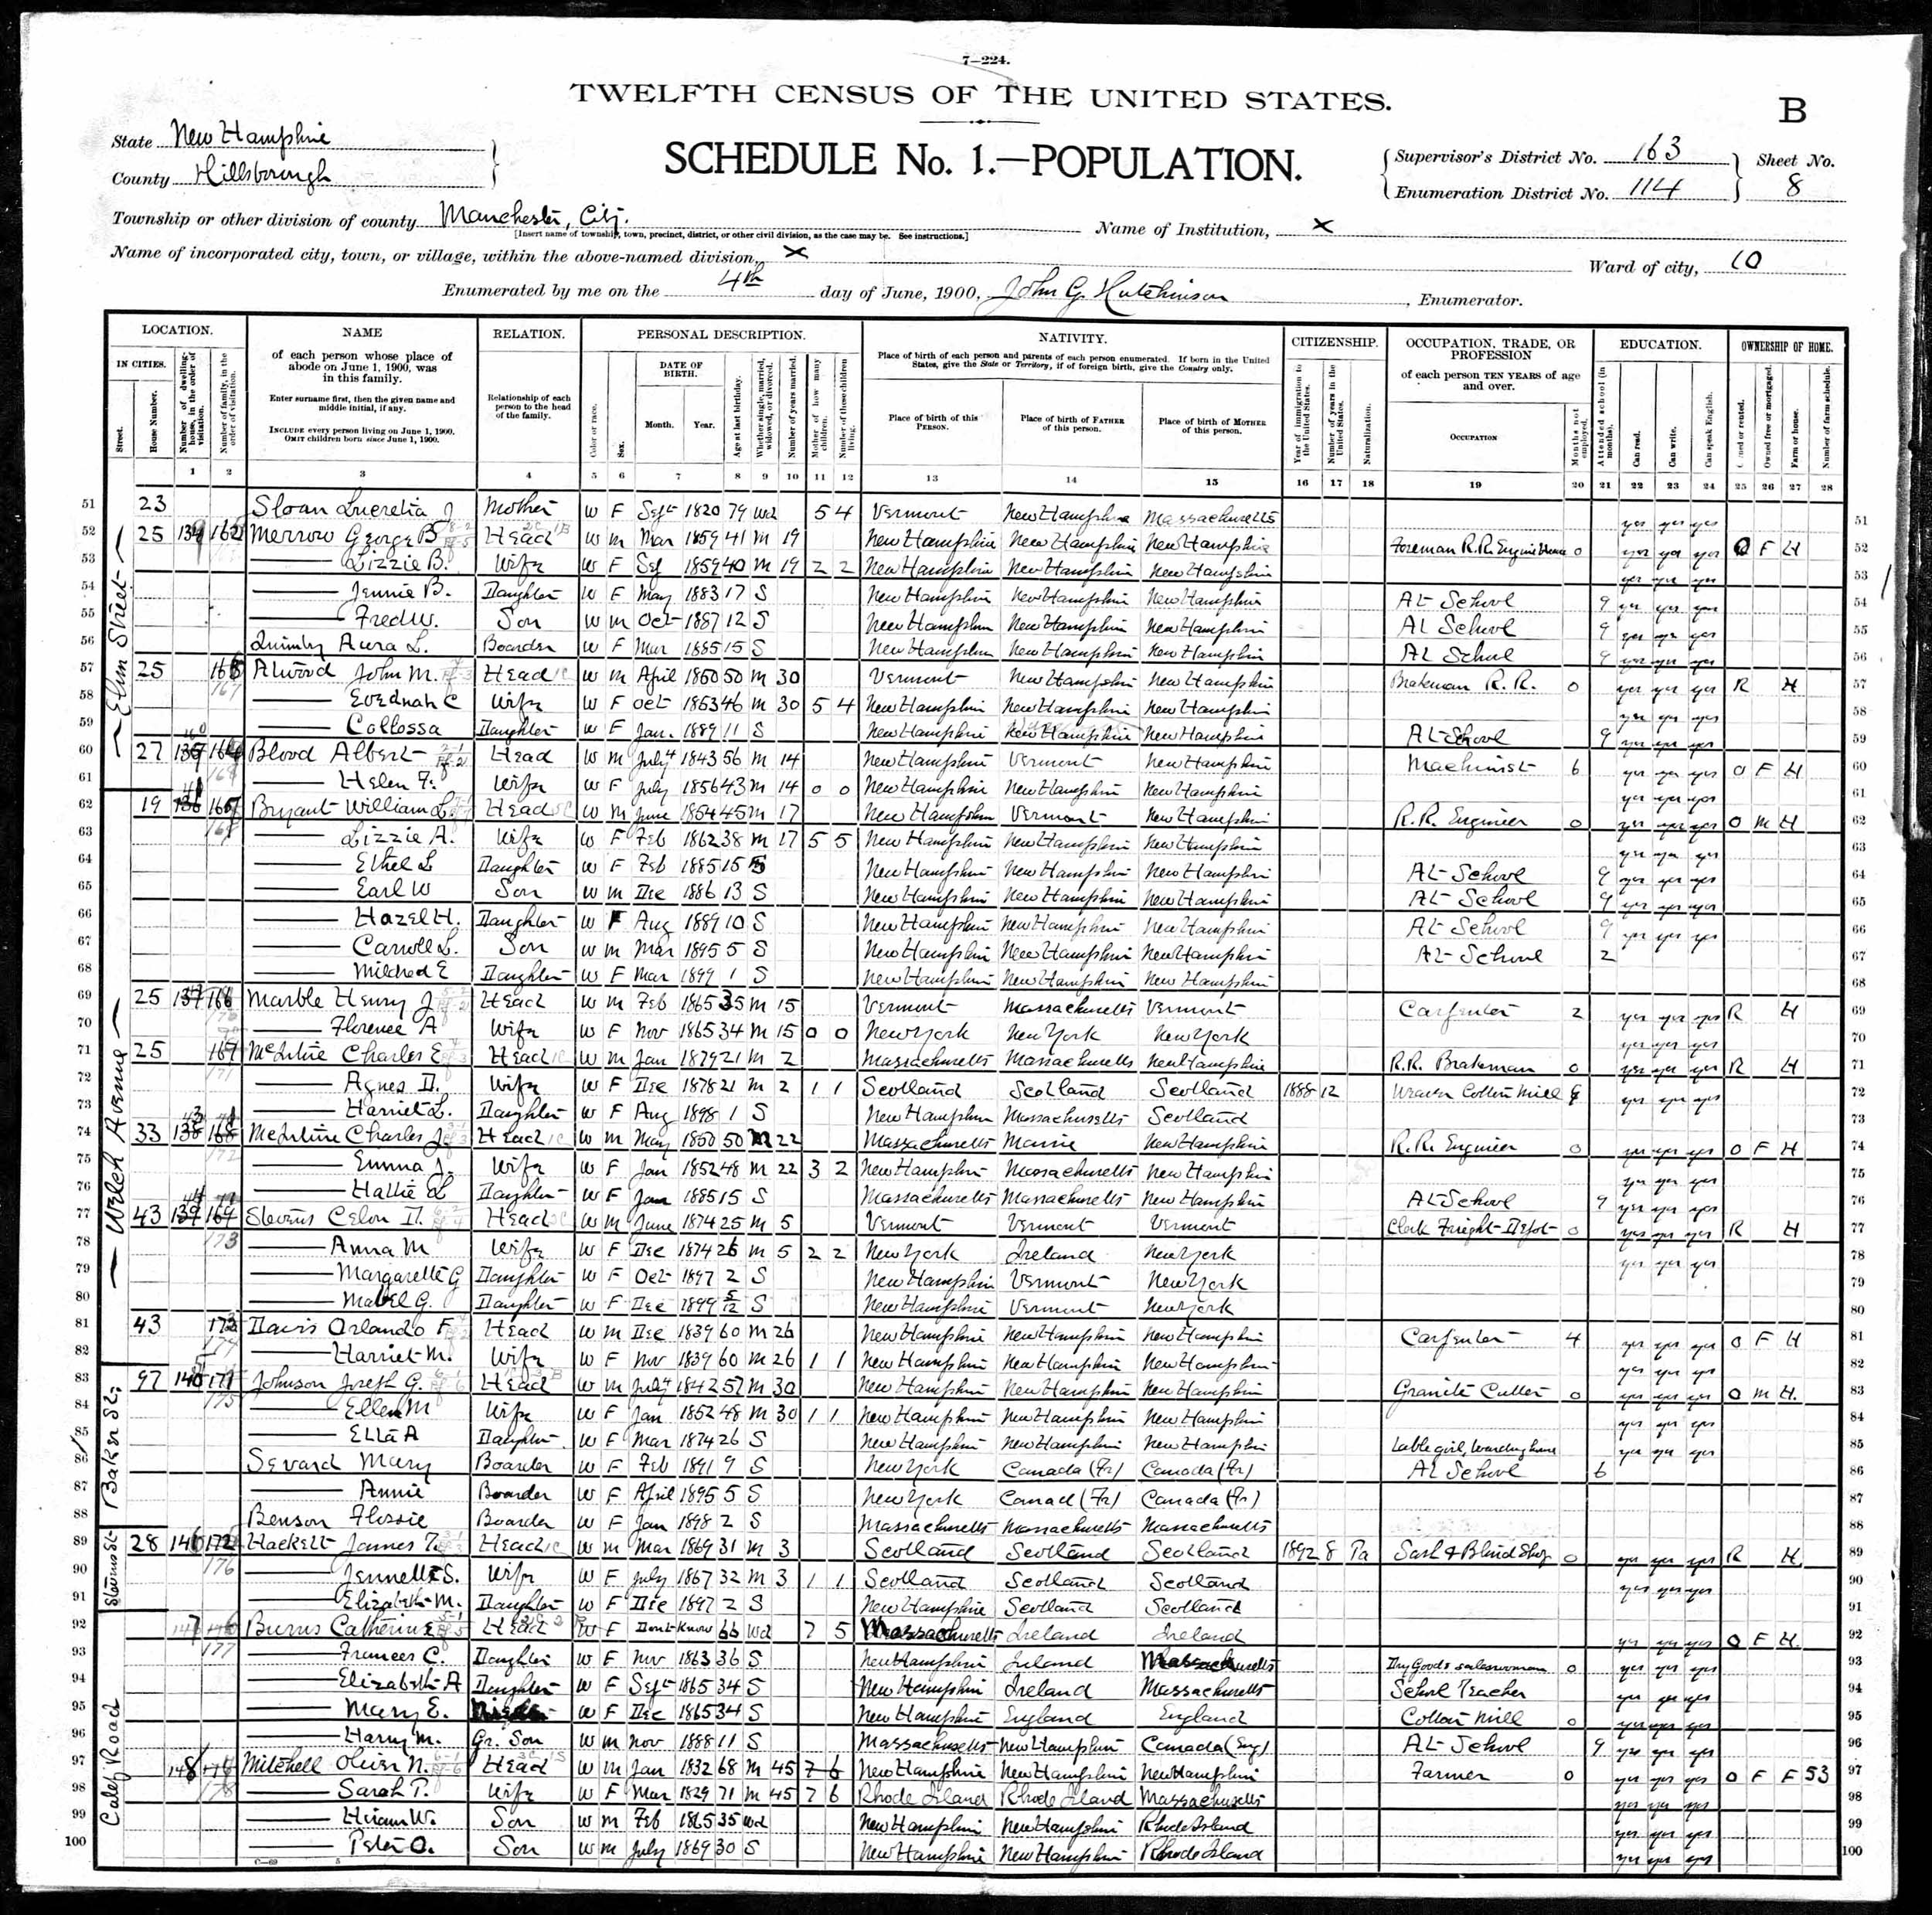 7—224.
TWELFTH CENSUS OF THE UNITED STATES.
B
State New Hampshire
County Hillsborough
SCHEDULE No. 1.—POPULATION.
Supervisor's District No. 163
Enumeration District No. 114
Sheet No.
8
Township or other division of county Manchester, City.
[Insert name of township, town, precinct, district, or other civil division, as the case may be. See instructions.]
Name of Institution, X
Name of incorporated city, town, or village, within the above-named division, X
Ward of city, 10
Enumerated by me on the 4th day of June, 1900, John G. Hutchinson, Enumerator.
LOCATION. NAME RELATION. PERSONAL DESCRIPTION. NATIVITY. CITIZENSHIP. OCCUPATION, TRADE, OR PROFESSION EDUCATION. OWNERSHIP OF HOME.
IN CITIES. Street. House Number. Number of dwelling-house, in the order of visitation. Number of family, in the order of visitation.
of each person whose place of abode on June 1, 1900, was in this family.
Enter surname first, then the given name and middle initial, if any.
INCLUDE every person living on June 1, 1900.
OMIT children born since June 1, 1900.
Relationship of each person to the head of the family.
Color or race. Sex. DATE OF BIRTH. Month. Year. Age at last birthday. Whether single, married, widowed, or divorced. Number of years married. Mother of how many children. Number of these children living.
Place of birth of each person and parents of each person enumerated. If born in the United States, give the State or Territory, if of foreign birth, give the Country only.
Place of birth of this PERSON. Place of birth of FATHER of this person. Place of birth of MOTHER of this person.
Year of immigration to the United States. Number of years in the United States. Naturalization.
of each person TEN YEARS of age and over.
OCCUPATION Months not employed.
Attended school (in months). Can read. Can write. Can speak English.
Owned or rented. Owned free or mortgaged. Farm or house. Number of farm schedule.
1 2 3 4 5 6 7 8 9 10 11 12 13 14 15 16 17 18 19 20 21 22 23 24 25 26 27 28
Elm Street
51 23 Sloan Lucretia J Mother W F Sept 1820 79 Wd 5 4 Vermont New Hampshire Massachusetts yes yes yes 51
52 25 Merrow George B Head W m Mar 1859 41 m 19 New Hampshire New Hampshire New Hampshire Foreman R.R. Engine House 0 yes yes yes O F H 52
53 Lizzie B. Wife W F Sep 1859 40 m 19 2 2 New Hampshire New Hampshire New Hampshire yes yes yes 53
54 Jennie B. Daughter W F May 1883 17 S New Hampshire New Hampshire New Hampshire At School 9 yes yes yes 54
55 Fred W. Son W m Oct 1887 12 S New Hampshire New Hampshire New Hampshire At School 9 yes yes yes 55
56 Quimby Aura L. Boarder W F Mar 1885 15 S New Hampshire New Hampshire New Hampshire At School 9 yes yes yes 56
57 25 Atwood John M. Head W m April 1850 50 m 30 Vermont New Hampshire New Hampshire Brakeman R. R. 0 yes yes yes R H 57
58 Evednah C Wife W F Oct 1853 46 m 30 5 4 New Hampshire New Hampshire New Hampshire yes yes yes 58
59 Collossa Daughter W F Jan. 1889 11 S New Hampshire New Hampshire New Hampshire At School 9 yes yes yes 59
60 27 Blood Albert Head W m July 1843 56 m 14 New Hampshire Vermont New Hampshire Machinist 6 yes yes yes O F H 60
61 Helen F. Wife W F July 1856 43 m 14 0 0 New Hampshire New Hampshire New Hampshire yes yes yes 61
Welch Avenue
62 19 Bryant William L Head W m June 1854 45 m 17 New Hampshire Vermont New Hampshire R.R. Engineer 0 yes yes yes O m H 62
63 Lizzie A. Wife W F Feb 1862 38 m 17 5 5 New Hampshire New Hampshire New Hampshire yes yes yes 63
64 Ethel L Daughter W F Feb 1885 15 S New Hampshire New Hampshire New Hampshire At School 9 yes yes yes 64
65 Earl W Son W m Dec 1886 13 S New Hampshire New Hampshire New Hampshire At School 9 yes yes yes 65
66 Hazel H. Daughter W F Aug 1889 10 S New Hampshire New Hampshire New Hampshire At School 9 yes yes yes 66
67 Carroll L. Son W m Mar 1895 5 S New Hampshire New Hampshire New Hampshire At School 2 67
68 Mildred E Daughter W F Mar 1899 1 S New Hampshire New Hampshire New Hampshire 68
69 25 Marble Henry J Head W m Feb 1865 35 m 15 Vermont Massachusetts Vermont Carpenter 2 yes yes yes R H 69
70 Florence A Wife W F Nov 1865 34 m 15 0 0 New York New York New York yes yes yes 70
71 25 McIntire Charles E. Head W m Jan 1879 21 m 2 Massachusetts Massachusetts New Hampshire R.R. Brakeman 0 yes yes yes R H 71
72 Agnes D. Wife W F Dec 1878 21 m 2 1 1 Scotland Scotland Scotland 1888 12 Weaver Cotton Mill yes yes yes 72
73 Harriet L. Daughter W F Aug 1898 1 S New Hampshire Massachusetts Scotland 73
74 33 McIntire Charles J. Head W m May 1850 50 m 22 Massachusetts Maine New Hampshire R.R. Engineer 0 yes yes yes O F H 74
75 Emma J. Wife W F Jan 1852 48 m 22 3 2 New Hampshire Massachusetts New Hampshire yes yes yes 75
76 Hallie L Daughter W F Jan 1885 15 S Massachusetts Massachusetts New Hampshire At School 9 yes yes yes 76
77 43 Stevens Celon D. Head W m June 1874 25 m 5 Vermont Vermont Vermont Clerk Freight Depot 0 yes yes yes R H 77
78 Anna M Wife W F Dec 1874 26 m 5 2 2 New York Ireland New York yes yes yes 78
79 Margarette G Daughter W F Oct 1897 2 S New Hampshire Vermont New York 79
80 Mabel G. Daughter W F Dec 1899 5/12 S New Hampshire Vermont New York 80
81 43 Davis Orlando F. Head W m Dec 1839 60 m 26 New Hampshire New Hampshire New Hampshire Carpenter 4 yes yes yes O F H 81
82 Harriet M. Wife W F Nov 1839 60 m 26 1 1 New Hampshire New Hampshire New Hampshire yes yes yes 82
Baker St.
83 97 Johnson Joseph G. Head W m July 1842 57 m 30 New Hampshire New Hampshire New Hampshire Granite Cutter 0 yes yes yes O m H. 83
84 Ellen M Wife W F Jan 1852 48 m 30 1 1 New Hampshire New Hampshire New Hampshire yes yes yes 84
85 Ella A Daughter W F Mar 1874 26 S New Hampshire New Hampshire New Hampshire Table girl, boarding house yes yes yes 85
86 Sevard Mary Boarder W F Feb 1891 9 S New York Canada (Fr) Canada (Fr) At School 6 86
87 Annie Boarder W F April 1895 5 S New York Canad (Fr) Canada (Fr) 87
88 Benson Flossie Boarder W F Jan 1898 2 S Massachusetts Massachusetts Massachusetts 88
Stevens St
89 28 Hackett James T. Head W m Mar 1869 31 m 3 Scotland Scotland Scotland 1892 8 Pa Sash & Blind Shop 0 yes yes yes R H 89
90 Jennette S. Wife W F July 1867 32 m 3 1 1 Scotland Scotland Scotland yes yes yes 90
91 Elizabeth M. Daughter W F Dec 1897 2 S New Hampshire Scotland Scotland 91
Calef Road
92 Burns Catherine Head W F Dont Know 66 Wd 7 5 Massachusetts Ireland Ireland yes yes yes O F H. 92
93 Frances C. Daughter W F Nov 1863 36 S New Hampshire Ireland Massachusetts Dry Goods saleswoman 0 yes yes yes 93
94 Elizabeth A Daughter W F Sept 1865 34 S New Hampshire Ireland Massachusetts School Teacher yes yes yes 94
95 Mary E. W F Dec 1865 34 S New Hampshire England England Cotton Mill 0 yes yes yes 95
96 Harry M. Gr. Son W m Nov 1888 11 S Massachusetts New Hampshire Canada (Eng) At School 9 yes yes yes 96
97 Mitchell Oliver N. Head W m Jan 1832 68 m 45 7 6 New Hampshire New Hampshire New Hampshire Farmer 0 yes yes yes O F F 53 97
98 Sarah T. Wife W F Mar 1829 71 m 45 7 6 Rhode Island Rhode Island Massachusetts yes yes yes 98
99 Hiram W. Son W m Feb 1865 35 Wd New Hampshire New Hampshire Rhode Island yes yes yes 99
100 Peter O. Son W m July 1869 30 S New Hampshire New Hampshire Rhode Island yes yes yes 100